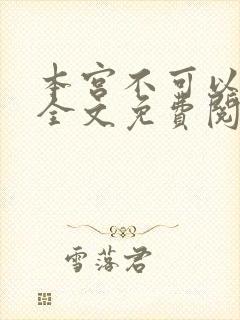 本宫不可以
全文免费阅
雪落君